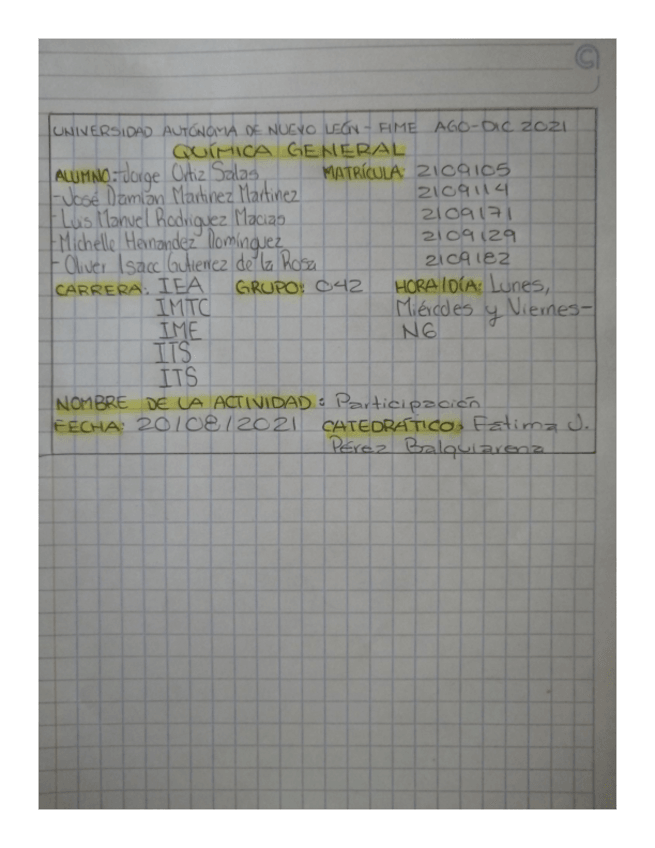 UNIVERSIDAD AUTÓNOMA DE NUEVO LEÓN - FIME AGO-DIC 2021
QUÍMICA GENERAL
ALUMNO: Jorge Ortiz Salas MATRÍCULA: 2109105
- José Damian Martinez Martinez 2109114
- Luis Manuel Rodriguez Macias 2109171
- Michelle Hernandez Domínguez 2109129
- Oliver Isacc Gutierrez de la Rosa 2109182
CARRERA: IEA GRUPO: 042 HORA/DÍA: Lunes,
IMTC Miércoles y Viernes-
IME N6
ITS
ITS
NOMBRE DE LA ACTIVIDAD: Participación
FECHA: 20/08/2021 CATEDRÁTICO: Fatima J.
Pérez Balquiarena